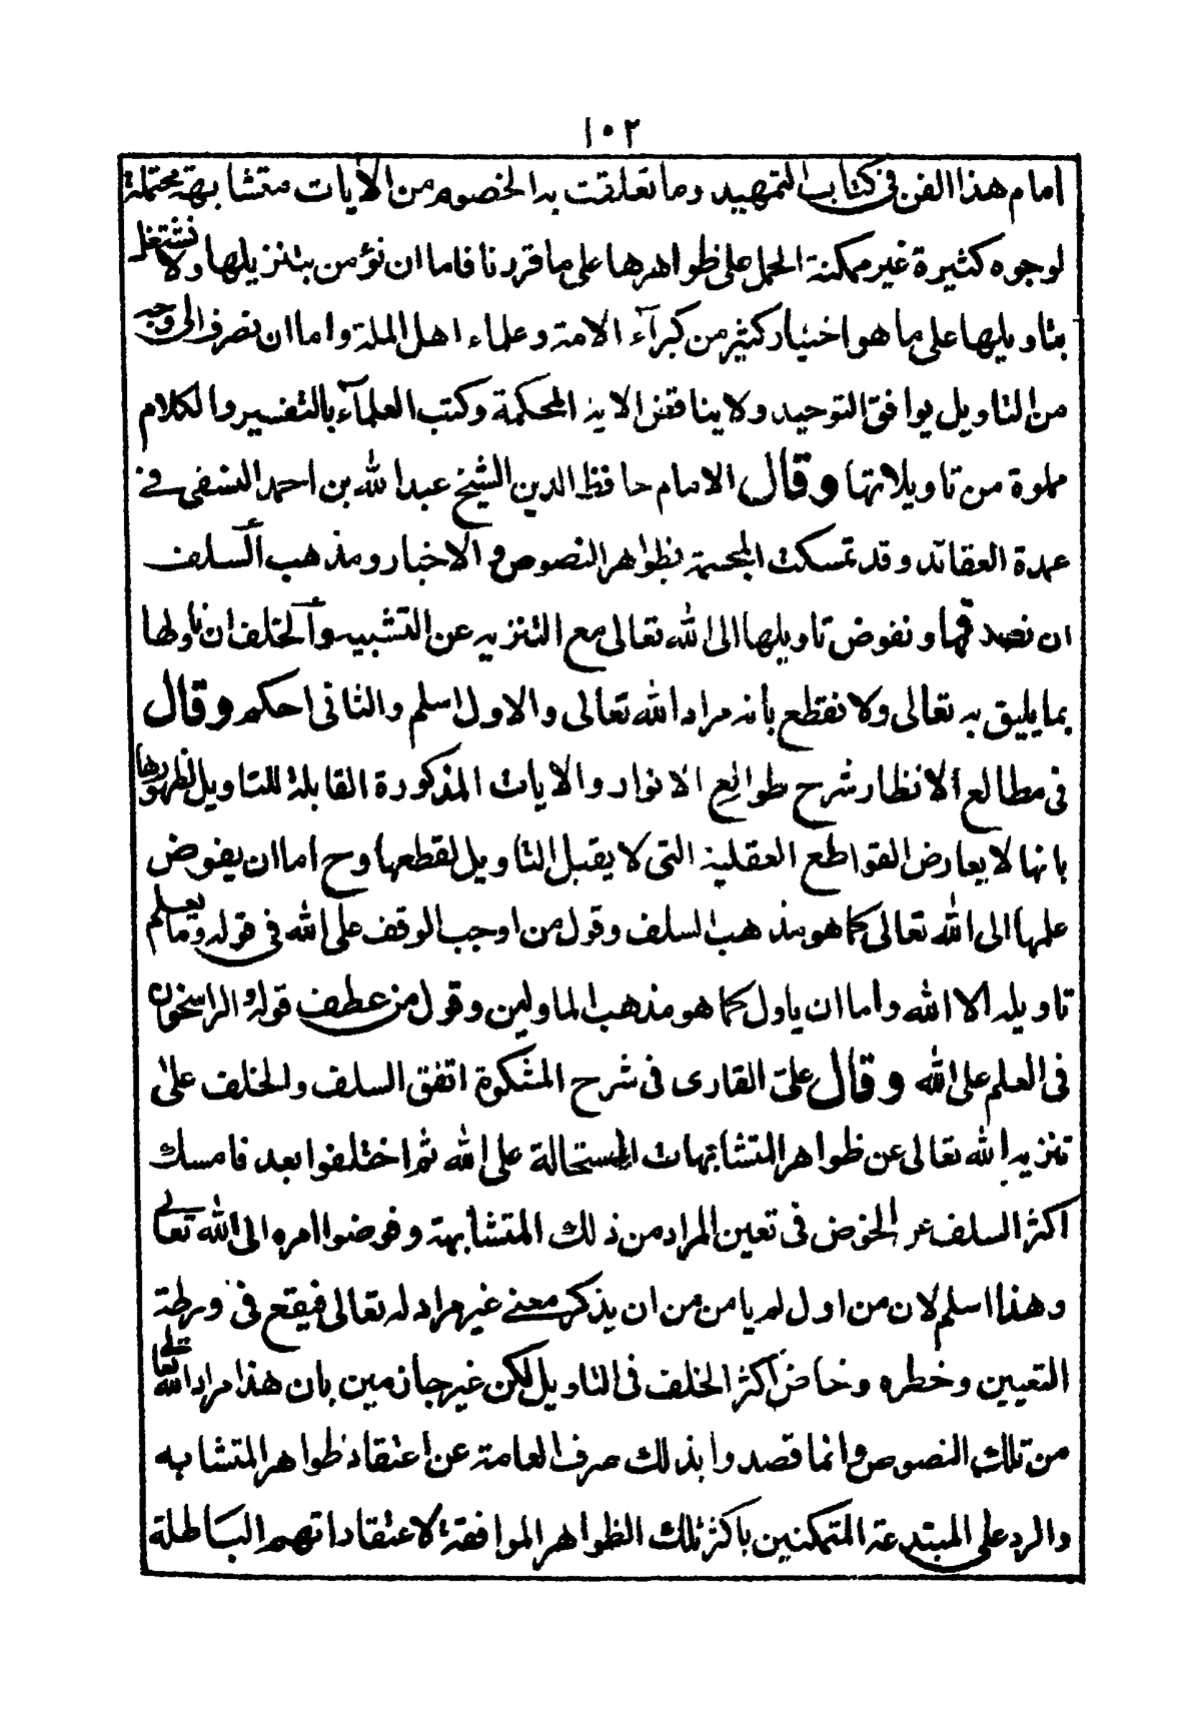 ١٠٢
امام هذا الفن فى كتاب التمهيد وما تعلقت به الخصوم من الآيات متشابهة محتملة
لوجوه كثيرة غير ممكنة الحمل على ظواهرها على ما قررنا فاما ان نؤمن بتنزيلها ولا نشتغل
بتاويلها على ما هو اختيار كثير من كبرآء الامة وعلماء اهل الملة واما ان نصرف الى وجه
من التاويل يوافق التوحيد ولا يناقض الاية المحكمة وكتب العلمآء بالتفسير والكلام
مملوة من تاويلاتها وقال الامام حافظ الدين الشيخ عبد الله بن احمد النسفى فى
عمدة العقائد وقد تمسكت المجسمة بظواهر النصوص والاخبار ومذهب السلف
ان نصدقها ونفوض تاويلها الى الله تعالى مع التنزيه عن التشبيه والخلف ان ناولها
بما يليق به تعالى ولا نقطع بأنه مراد الله تعالى والاول اسلم والثانى احكم وقال
فى مطالع الانظار شرح طوالع الانوار والايات المذكورة القابلة للتاويل لظهورها
بانها لا يعارض القواطع العقلية التى لا يقبل التاويل لقطعها وح اما ان يفوض
علمها الى الله تعالى كما هو مذهب السلف وقول من اوجب الوقف على الله فى قوله وما يعلم
تاويله الا الله واما ان ياول كما هو مذهب الماولين وقول من عطف قوله والراسخون
فى العلم على الله وقال على القارى فى شرح المشكوة اتفق السلف والخلف على
تنزيه الله تعالى عن ظواهر المتشابهات المستحالة على الله ثم اختلفوا بعد فامسك
اكثر السلف عن الخوض فى تعين المراد من ذلك المتشابهة وفوضوا امره الى الله تعالى
وهذا اسلم لان من اول لم يامن من ان يذكر معنى غير مراد له تعالى فيقع فى ورطة
التعيين وخطره وخاض اكثر الخلف فى التاويل لكن غير جازمين بان هذا مراد الله تعالى
من تلك النصوص وانما قصدوا بذلك صرف العامة عن اعتقاد ظواهر المتشابه
والرد على المبتدعة المتمكنين باكثر تلك الظواهر الموافقة لاعتقاداتهم الباطلة